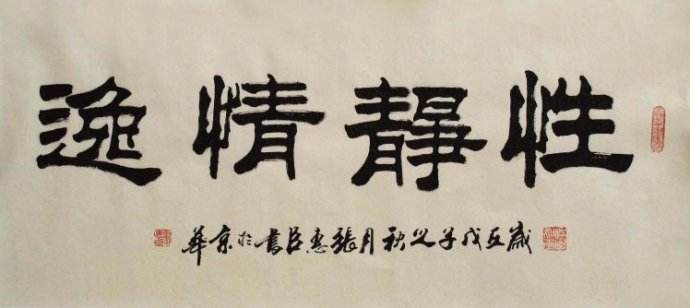 性靜情逸
歲在戊子之秋月張惠臣書於京華